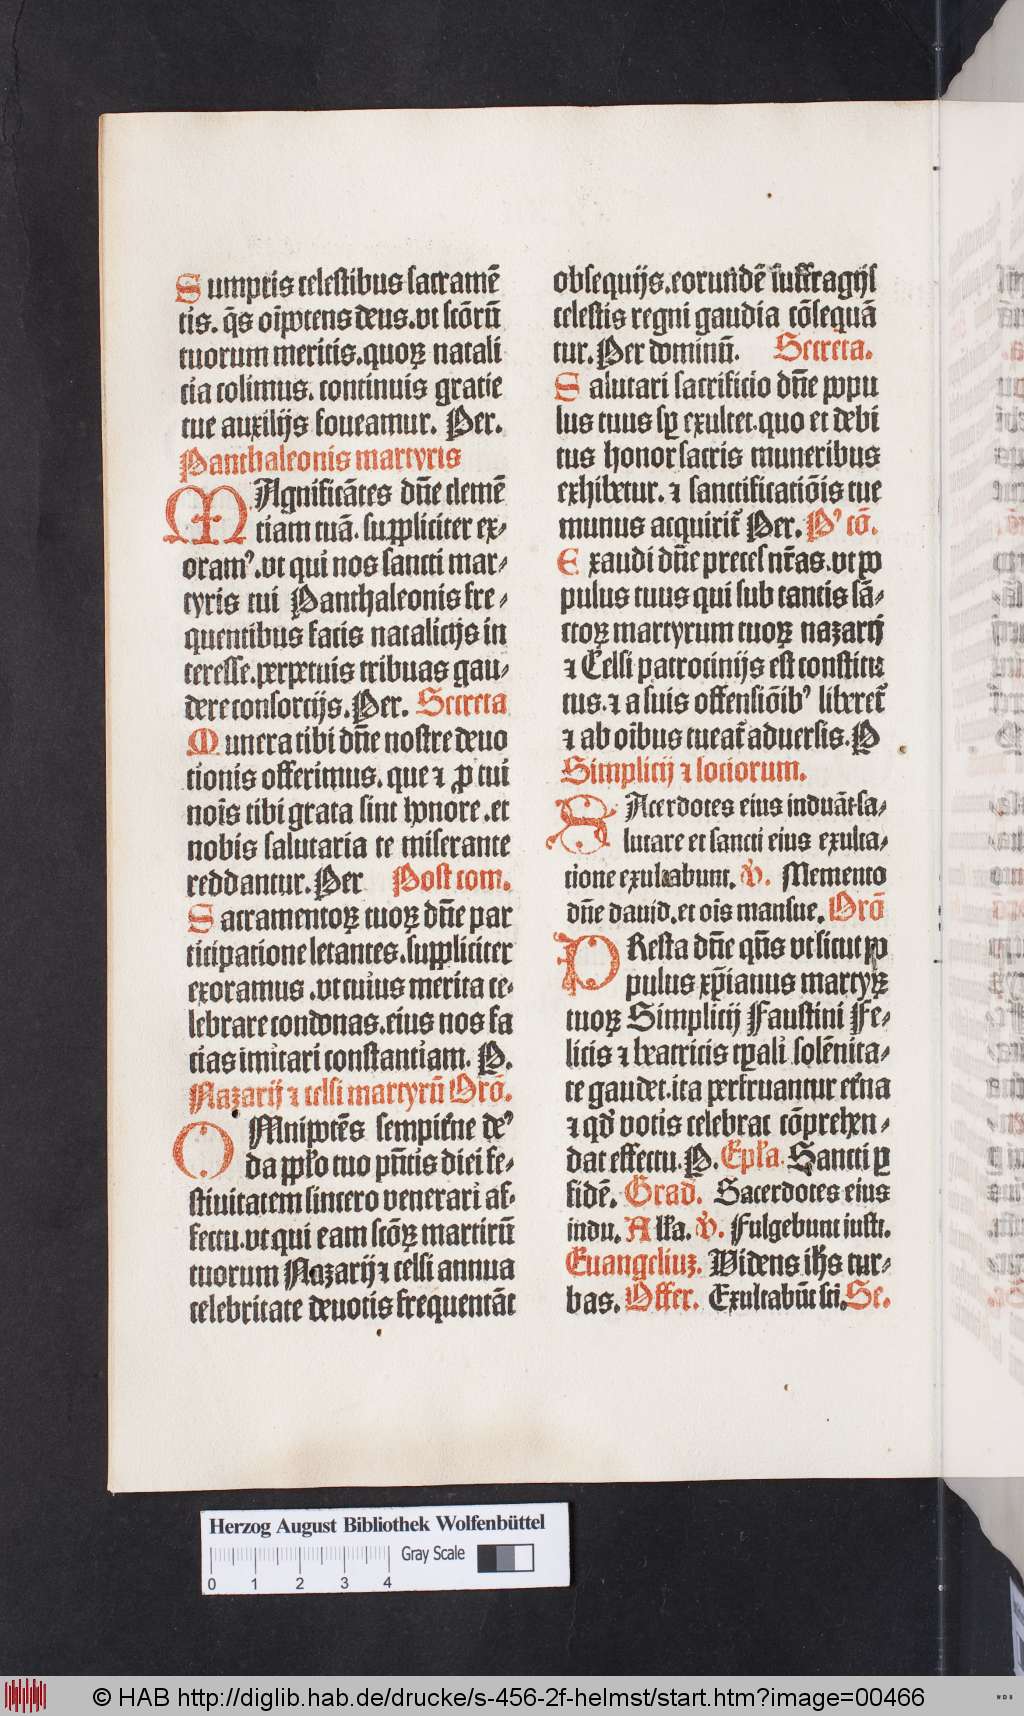 Sumptis celestibus sacramē
tis. q̄s oīpotens deus. vt scōrū
tuorum meritis. quoꝝ natali
cia colimus. continuis gratie
tue auxilijs foueamur. Per.
Panthaleonis martyris
MAgnificātes dn̄e clemē
tiam tuā. suppliciter ex-
oramꝰ. vt qui nos sancti mar-
tyris tui Panthaleonis fre-
quentibus facis natalicijs in
teresse. perpetuis tribuas gau-
dere consorcijs. Per. Secreta
Munera tibi dn̄e nostre deuo
tionis offerimus. que ⁊ ꝓ tui
noīs tibi grata sint honore. et
nobis salutaria te miserante
reddantur. Per Post com.
Sacramentoꝝ tuoꝝ dn̄e par
ticipatione letantes. suppliciter
exoramus. vt cuius merita ce-
lebrare condonas. eius nos fa
cias imitari constantiam. P.
Nazarij ⁊ celsi martyrū Orō.
OMnipotēs sempit̄ne deꝰ
da pp̄lo tuo pn̄tis diei fe-
stiuitatem sincero venerari af-
fectu. vt qui eam scōꝝ martirū
tuorum Nazarij ⁊ celsi annua
celebritate deuotis frequentāt
obsequijs. eorundē suffragijs
celestis regni gaudia cōsequā
tur. Per dominū. Secreta.
Salutari sacrificio dn̄e popu
lus tuus sꝑ exultet. quo et debi
tus honor sacris muneribus
exhibetur. ⁊ sanctificatiōis tue
munus acquirit̄ Per. Pꝰ cō.
Exaudi dn̄e preces nr̄as. vt po
pulus tuus qui sub tantis sā-
ctoꝝ martyrum tuoꝝ nazarij
⁊ Celsi patrocinijs est constitu
tus. ⁊ a suis offensiōibꝰ liberet̄
⁊ ab oībus tueat̄ aduersis. P
Simplicij ⁊ sociorum.
SAcerdotes eius induāt sa-
lutare et sancti eius exulta-
tione exultabunt. V̓. Memento
dn̄e dauid. et oīs mansue. Orō
PResta dn̄e qn̄s vt sicut po
pulus xp̄ianus martyꝝ
tuoꝝ Simplicij Faustini Fe-
licis ⁊ beatricis tp̄ali solēnita-
te gaudet. ita perfruantur et̄na
⁊ qd̓ votis celebrat cōprehen-
dat effectu. P. Ep̄la. Sancti ꝑ
fidē. Grad. Sacerdotes eius
indu. Alla. V̓. Fulgebunt iusti.
Euangeliuꝫ. Videns ih̄s tur-
bas. Offer. Exultabūt sci. Se.
Herzog August Bibliothek Wolfenbüttel
Gray Scale
0 1 2 3 4
© HAB http://diglib.hab.de/drucke/s-456-2f-helmst/start.htm?image=00466